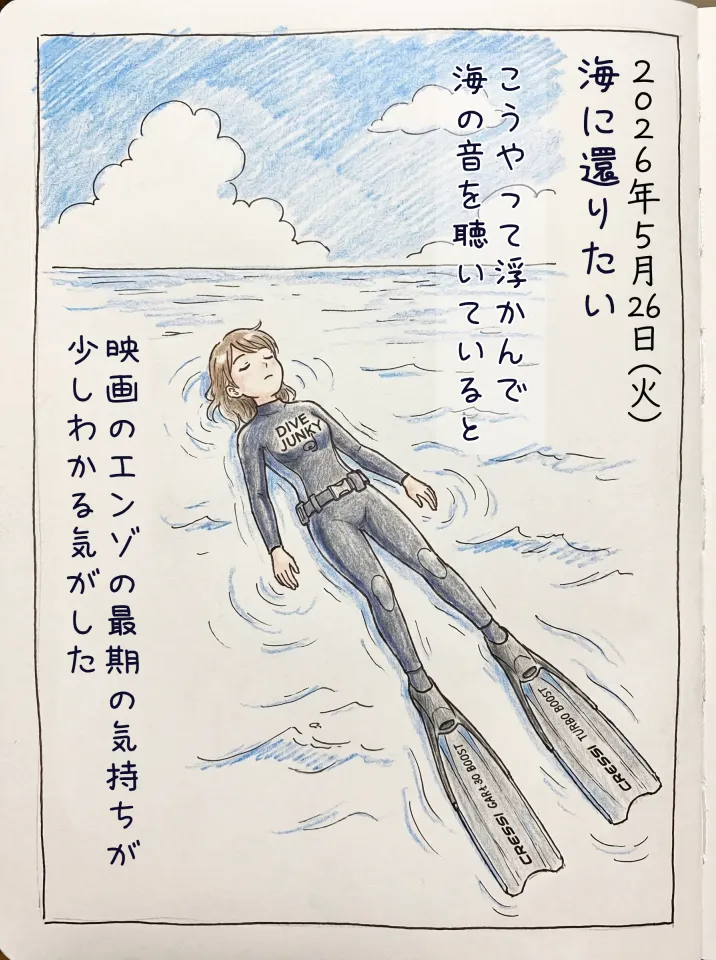 2026年5月26日(火)
海に還りたい
こうやって浮かんで
海の音を聴いていると
映画のエンゾの最期の気持ちが
少しわかる気がした
DIVE
JUNKY
CRESSI GARA 30 BOOST
CRESSI TURBO BOOST